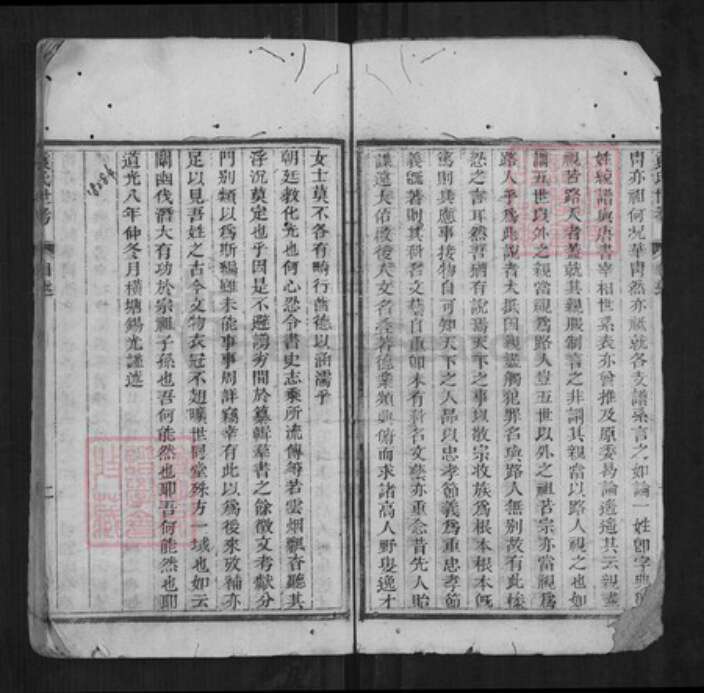 冑亦祖何况華冑然亦祇就各支譜系言之如論一姓卽字典
姓統譜與唐書宰相世系表亦曾推及原委易論遙遙其云親盡
視若路人者蓋就其親服制言之非謂其親當以路人視之也如
謂五世以外之親當視爲路人豈五世以外之祖若宗亦當視爲
路人乎爲此說者大抵因親盡觸犯罪名與路人無別故有此
忿之言耳然吾猶有說焉天下之事以敬宗收族爲根本根本旣
篤則其應事接物自可知天下之人品以忠孝節義爲重忠孝節
義旣著則其科名文藝自重如本有科名文藝亦重念昔先人貽
謀遠大佑啟後人文名臺著德業類與俯而求諸高人野叟逸才
女士莫不各有畸行舊德以涵濡乎
朝廷教化先也何心恐令書史志乘所流傳等若雲烟飄杳聽其
浮沉莫定也乎因是不避謭劣間於纂輯羣書之餘徵文考獻分
門別類以爲斯編雖未能事事周詳竊幸有此以爲後來攷補亦
足以見吾姓之古今文物衣冠不趐曠世同堂殊方一域也如云
闡幽伐潛大有功於宗祖子孫也吾何能然也耶吾何能然也耶
道光八年仲冬月橫塘錫光謹述
氏世考